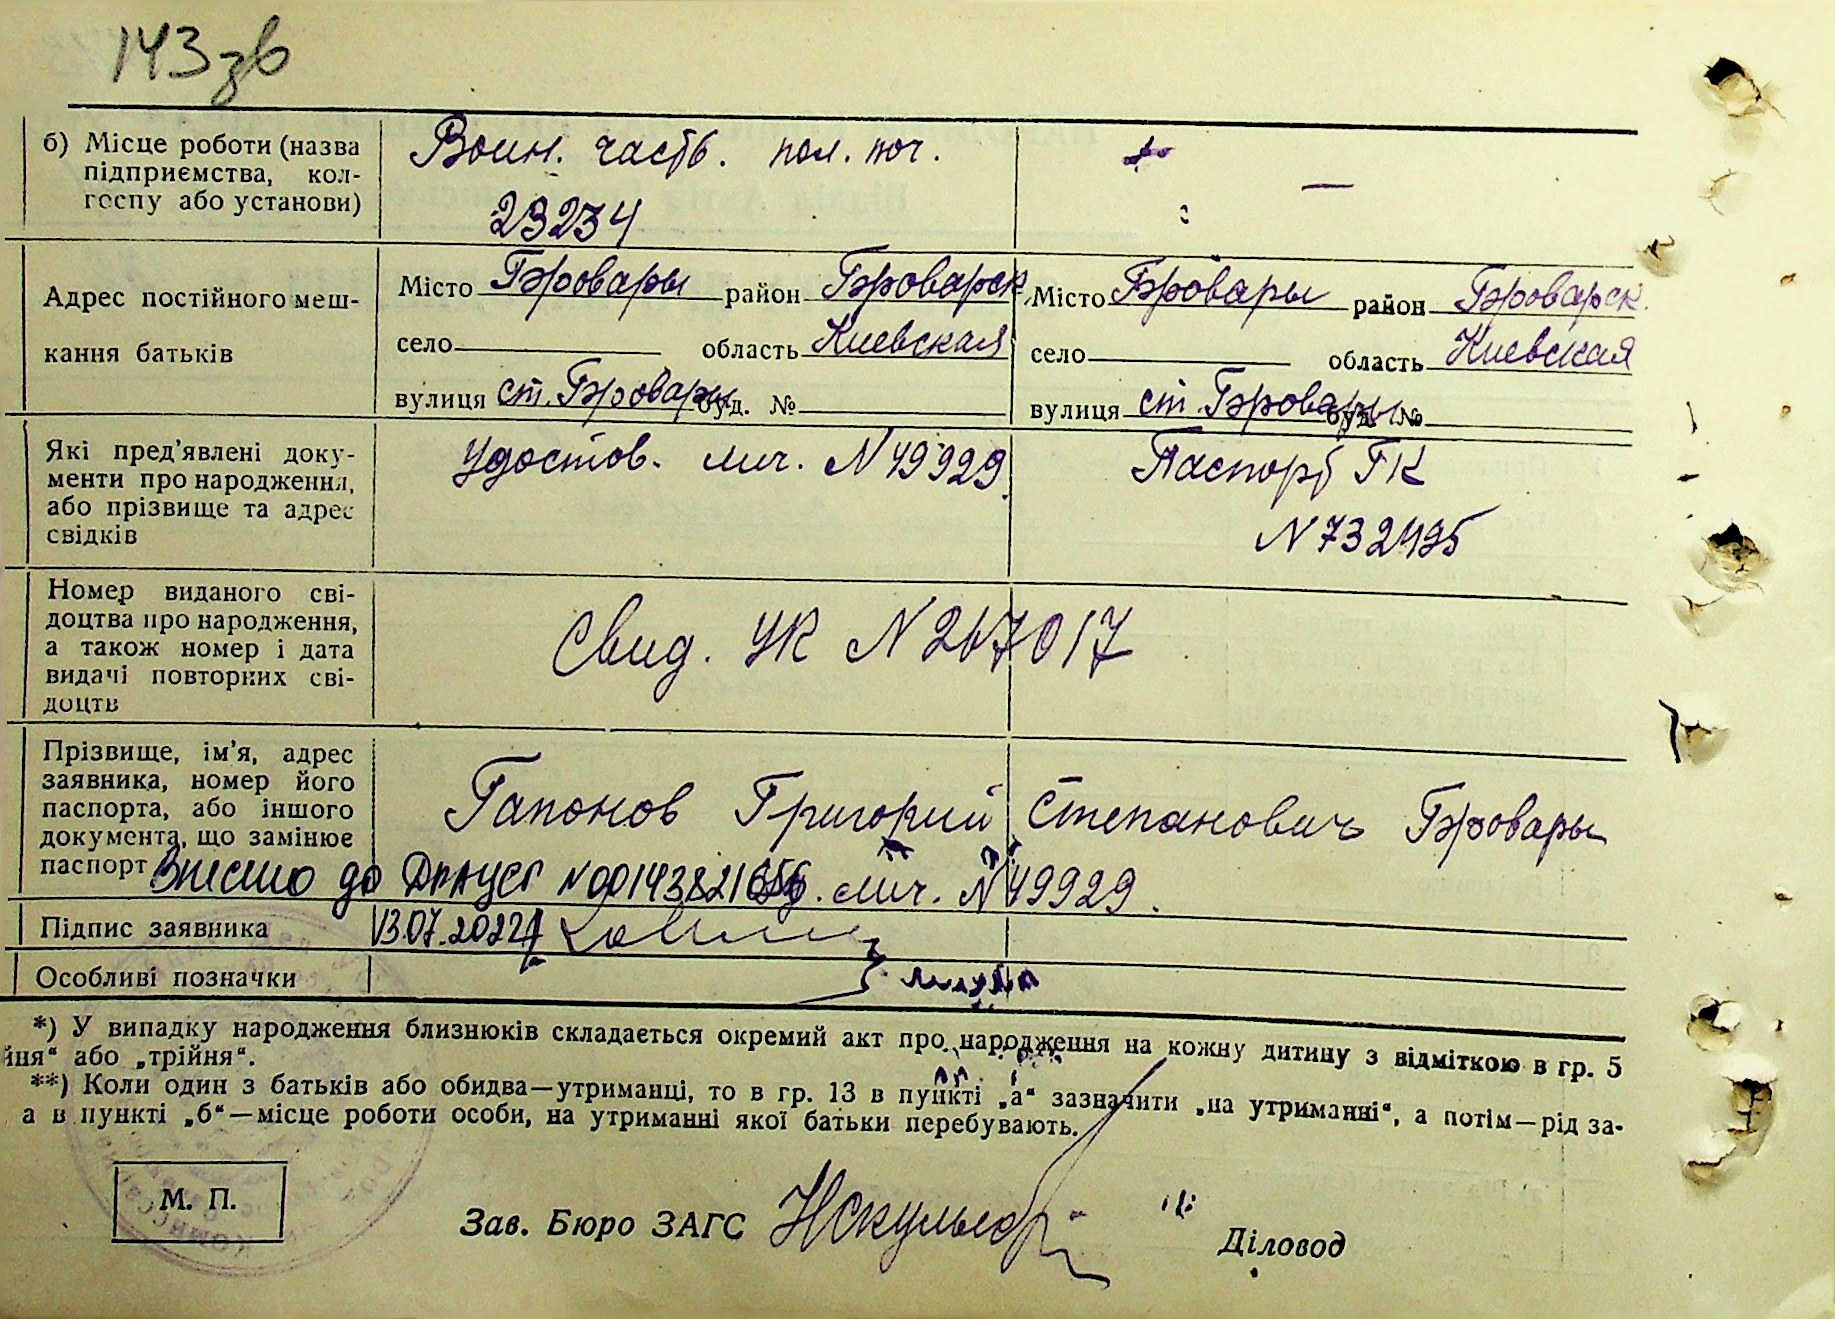 143зв
б) Місце роботи (назва
підприємства, кол-
госпу або установи)
Воин. часть. пол. поч.
23234
—
Адрес постійного меш-
кання батьків
Місто Бровары район Броварск.
село область Киевская
вулиця ст. Бровары буд. №
Місто Бровары район Броварск.
село область Киевская
вулиця ст. Бровары буд. №
Які пред'явлені доку-
менти про народження,
або прізвище та адрес
свідків
Удостов. лич. N 49929.
Паспорт ГК
N 732495
Номер виданого сві-
доцтва про народження,
а також номер і дата
видачі повторних сві-
доцтв
Свид. УК N 267017
Прізвище, ім'я, адрес
заявника, номер його
паспорта, або іншого
документа, що замінює
паспорт
Гапонов Григорий Степанович Бровары
уд. лич. N 49929.
Внесено до ДРАЦСГ N 00143821656
Підпис заявника
13.07.2022
Особливі позначки
*) У випадку народження близнюків складається окремий акт про народження на кожну дитину з відміткою в гр. 5
йня“ або „трійня“.
**) Коли один з батьків або обидва—утриманці, то в гр. 13 в пункті „а“ зазначити „на утриманні“, а потім—рід за-
а в пункті „б“—місце роботи особи, на утриманні якої батьки перебувають.
М. П.
Зав. Бюро ЗАГС
Діловод